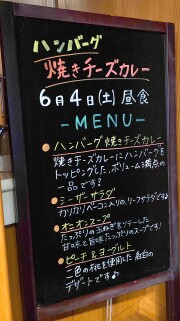 ハンバーグ
焼きチーズカレー
6月4日(土)昼食
-MENU-
・ハンバーグ焼きチーズカレー
焼きチーズカレーにハンバーグを
トッピングした、ボリューム満点の
一品です!
・シーザーサラダ
カリカリベーコン入りの、リーフサラダですよ
・オニオンスープ
たっぷりの玉ねぎをソテーした
甘味と旨味たっぷりのスープです。
・ピーチ&ヨーグルト
二色の桃を使用した紅白の
デザートです♪